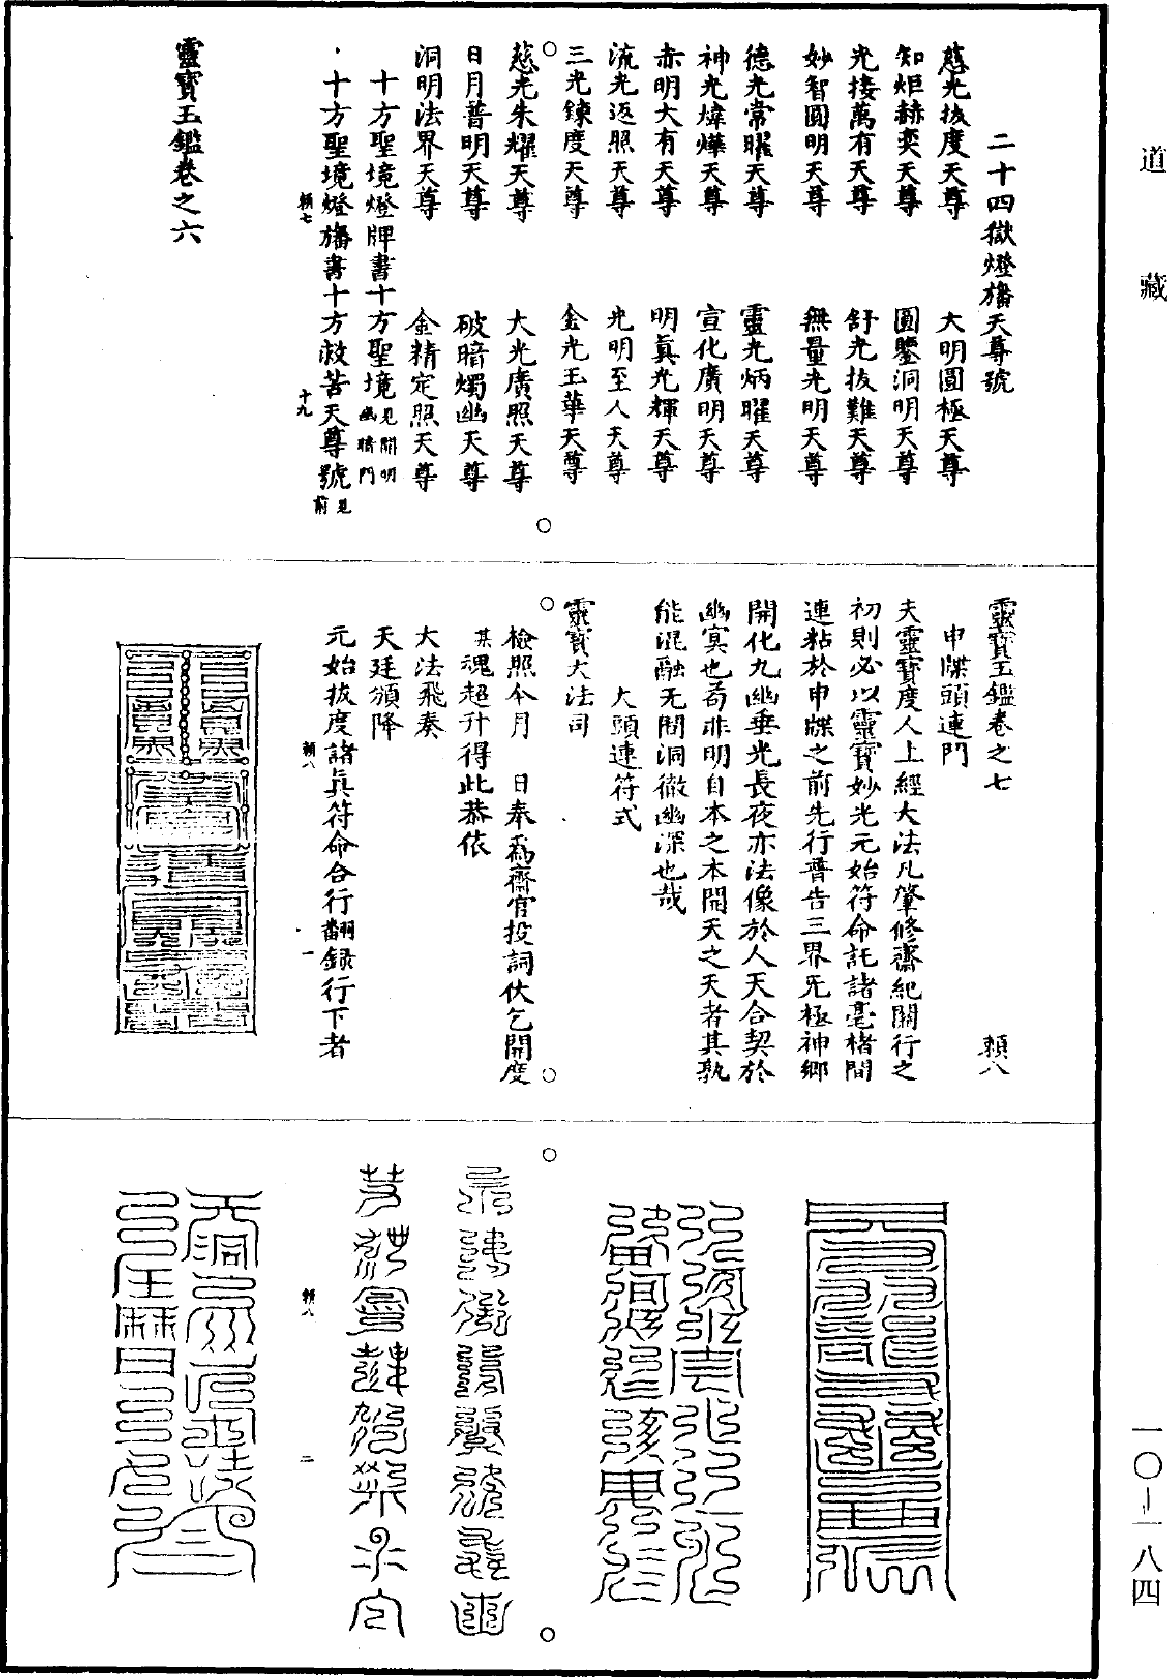 道藏
二十四獄燈旛天尊號
慈光拔度天尊　大明圓極天尊
知炬赫奕天尊　圓鑒洞明天尊
光接萬有天尊　舒光拔難天尊
妙智圓明天尊　無量光明天尊
德光常曜天尊　靈光炳曜天尊
神光煒燁天尊　宣化廣明天尊
赤明大有天尊　明眞光輝天尊
流光返照天尊　光明至人天尊
三光鍊度天尊　金光玉華天尊
慈光朱耀天尊　大光廣照天尊
日月普明天尊　破暗燭幽天尊
洞明法界天尊　金精定照天尊
十方聖境燈牌書十方聖境見開明幽暗門
十方聖境燈旛書十方救苦天尊號見前
賴七　十九
靈寶玉鑑卷之六
靈寶玉鑑卷之七　賴八
申牒頭連門
夫靈寶度人上經大法凡肇修齋紀關行之
初則必以靈寶妙光元始符命託諸毫楮間
連粘於申牒之前先行普告三界无極神鄉
開化九幽垂光長夜亦法像於人天合契於
幽冥也苟非明自本之本開天之天者其孰
能混融无間洞徹幽深也哉
大頭連符式
靈寶大法司
檢照今月　日奉爲齋官投詞伏乞開度
某魂超升得此恭依
大法飛奏
天廷頒降
元始拔度諸眞符命合行翻錄行下者
賴八　一
賴八　二
一〇—一八四